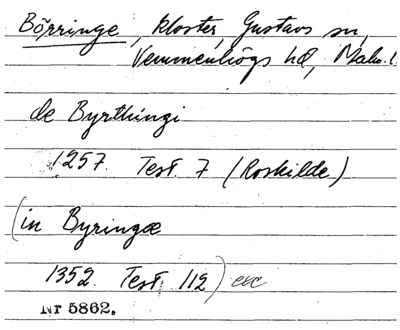 Börringe, kloster, Gustavs sn,
Vemmenhögs hd, Malm. l.
de Byrthingi
1257. Test. 7 (Roskilde)
(in Byringæ
1352. Test. 112) etc
Nr 5862.